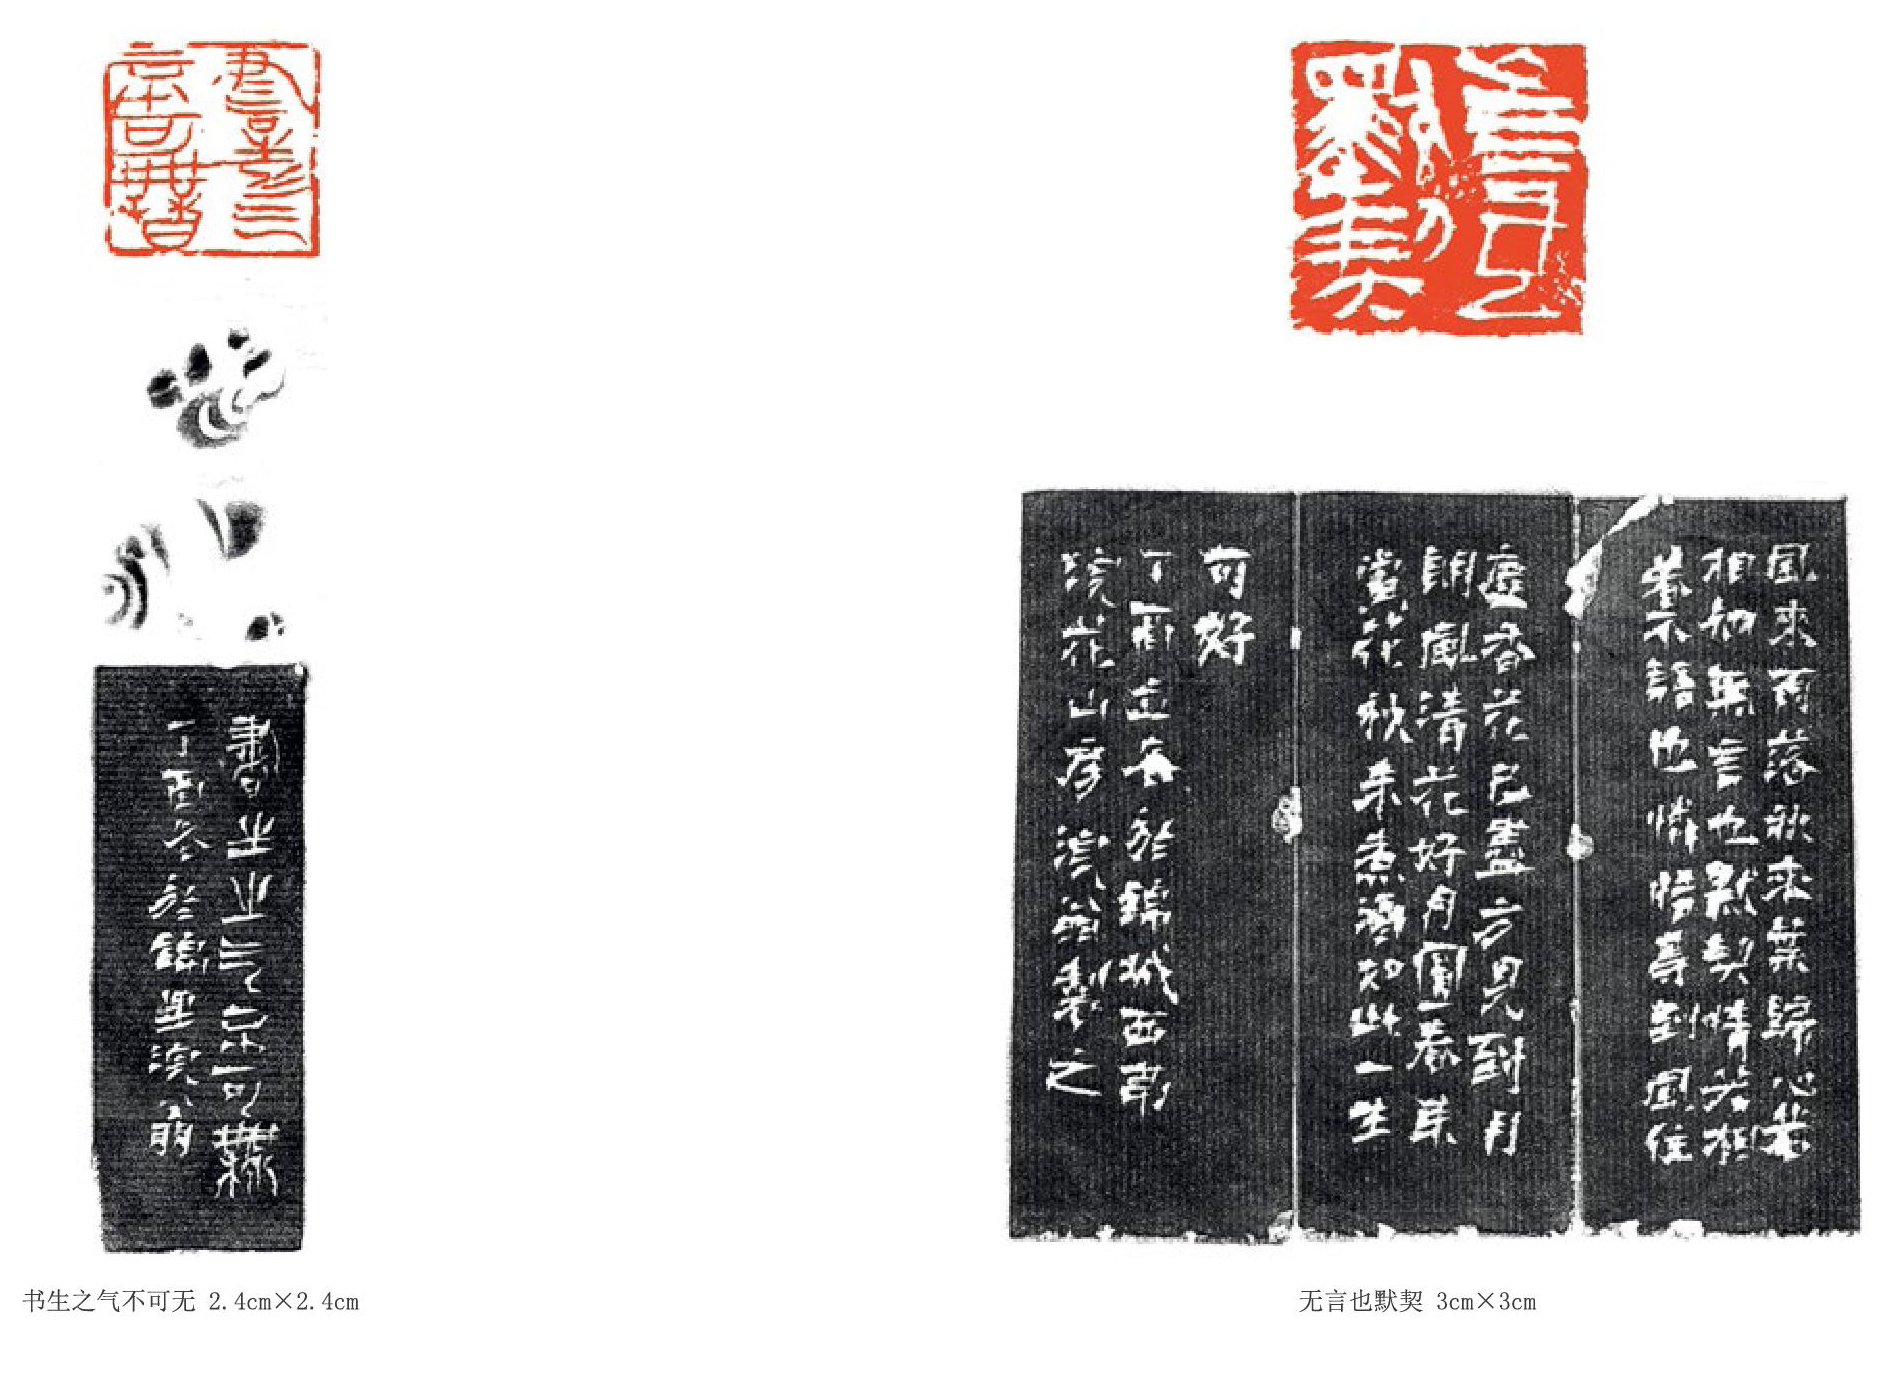 書生之气不可無
書生之气不可無
丁酉冬於錦里浣翁
书生之气不可无 2.4cm×2.4cm
无言也默契
風來雨落秋來葉歸心若
相知無言也默契情若相
眷不語也憐惜尋到風住
塵香花已盡方見到月
朗風清花好月圓春來
賞花秋來煮酒如此一生
可好
丁酉立春於錦城西郊
浣花山房浣翁製之
无言也默契 3cm×3cm